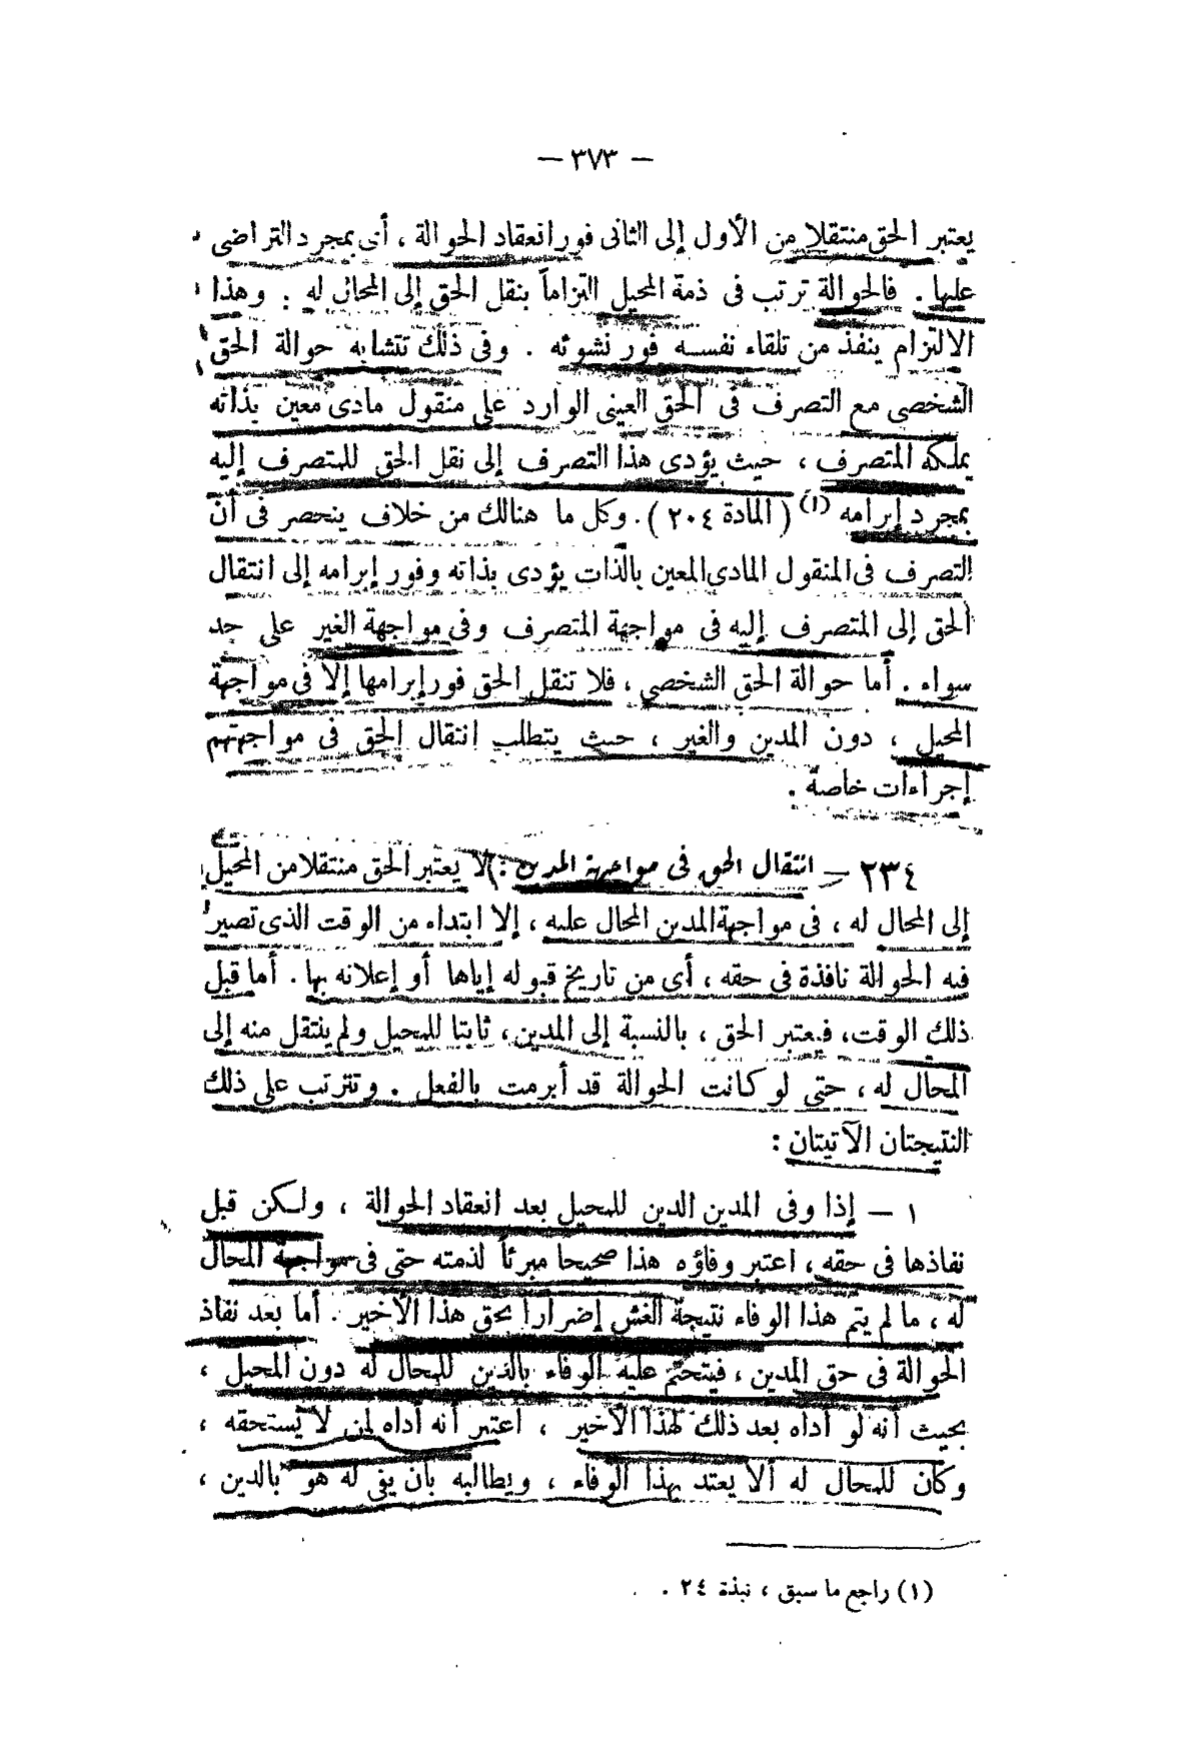 — ٣٧٣ —
يعتبر الحق منتقلا من الأول إلى الثانى فور انعقاد الحوالة ، أى بمجرد التراضى
عليها . فالحوالة ترتب فى ذمة المحيل التزاماً بنقل الحق إلى المحال له . وهذا
الالتزام ينفذ من تلقاء نفسه فور نشوئه . وفى ذلك تتشابه حوالة الحق
الشخصى مع التصرف فى الحق العينى الوارد على منقول مادى معين بذاته
يملكه المتصرف ، حيث يؤدى هذا التصرف إلى نقل الحق للمتصرف إليه
بمجرد إبرامه (١) ( المادة ٢٠٤ ) . وكل ما هنالك من خلاف ينحصر فى أن
التصرف فى المنقول المادى المعين بالذات يؤدى بذاته وفور إبرامه إلى انتقال
الحق إلى المتصرف إليه فى مواجهة المتصرف وفى مواجهة الغير على حد
سواء . أما حوالة الحق الشخصى ، فلا تنقل الحق فور إبرامها إلا فى مواجهة
المحيل ، دون المدين والغير ، حيث يتطلب انتقال الحق فى مواجهتهم
إجراءات خاصة .
٢٣٤ — انتقال الحق فى مواجهة المدين : لا يعتبر الحق منتقلا من المحيل
إلى المحال له ، فى مواجهة المدين المحال عليه ، إلا ابتداء من الوقت الذى تصير
فيه الحوالة نافذة فى حقه ، أى من تاريخ قبوله إياها أو إعلانه بها . أما قبل
ذلك الوقت ، فيعتبر الحق ، بالنسبة إلى المدين ، ثابتا للمحيل ولم ينتقل منه إلى
المحال له ، حتى لو كانت الحوالة قد أبرمت بالفعل . وتترتب على ذلك
النتيجتان الآتيتان :
١ — إذا وفى المدين الدين للمحيل بعد انعقاد الحوالة ، ولكن قبل
نفاذها فى حقه ، اعتبر وفاؤه هذا صحيحا مبرئاً لذمته حتى فى مواجهة المحال
له ، ما لم يتم هذا الوفاء نتيجة الغش إضراراً بحق هذا الأخير . أما بعد نفاذ
الحوالة فى حق المدين ، فيتحتم عليه الوفاء بالدين للمحال له دون المحيل ،
بحيث أنه لو أداه بعد ذلك لهذا الأخير ، اعتبر أنه أداه لمن لا يستحقه ،
وكان للمحال له ألا يعتد بهذا الوفاء ، ويطالبه بأن يفى له هو بالدين ،
(١) راجع ما سبق ، نبذة ٢٤ .